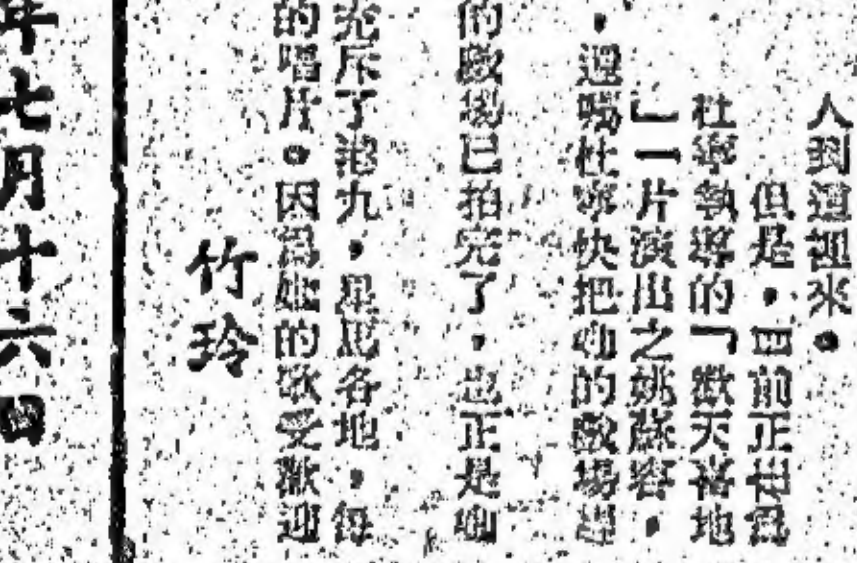 人到這裡來。
但是，目前正為
杜寧執導的「歡天喜地
」一片演出之姚蘇蓉，
，杜寧快把她的戲場趕
的戲場已拍完了，也正是她
充斥了港九，星馬各地，每
的唱片。因為她的歌受歡迎
竹玲
年七月十六日